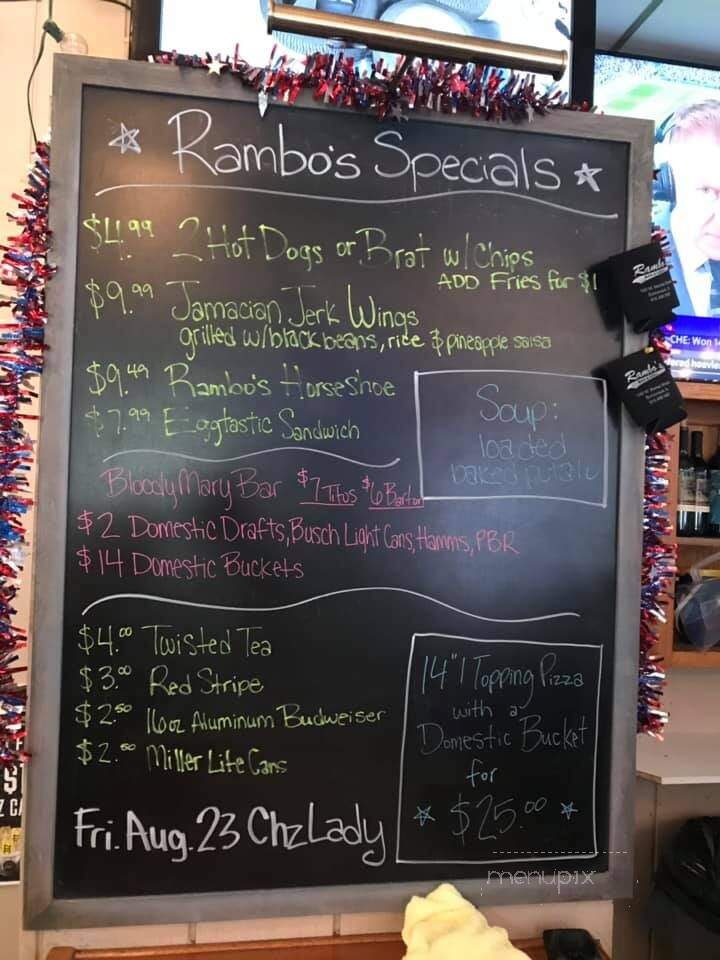 Rambo's Specials
$4.99 2 Hot Dogs or Brat w/ Chips
ADD Fries for $1
$9.99 Jamacian Jerk Wings
grilled w/ black beans, rice & pineapple salsa
$9.49 Rambo's Horseshoe
$7.99 Eggtastic Sandwich
Soup:
loaded
baked potato
Bloody Mary Bar $7 Titos $6 Barton
$2 Domestic Drafts, Busch Light Cans, Hamms, PBR
$14 Domestic Buckets
$4.00 Twisted Tea
$3.00 Red Stripe
$2.50 16oz Aluminum Budweiser
$2.00 Miller Lite Cans
14" 1 Topping Pizza
with a
Domestic Bucket
for
$25.00
Fri. Aug. 23 ChzLady
menupix
Rambo's
Rambo's
CHE: Won